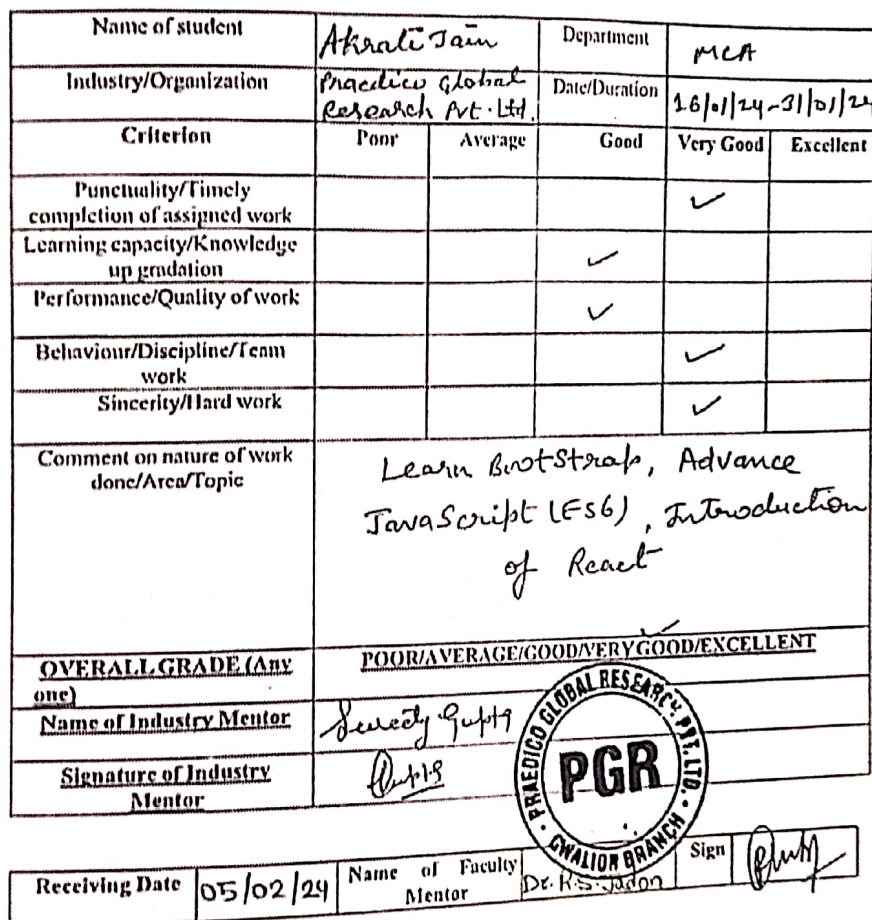 Name of student Akrati Jain Department MCA
Industry/Organization Praedico Global Research Pvt. Ltd. Date/Duration 16/01/24-31/01/24
Criterion Poor Average Good Very Good Excellent
Punctuality/Timely
completion of assigned work ✓
Learning capacity/Knowledge
up gradation ✓
Performance/Quality of work ✓
Behaviour/Discipline/Team
work ✓
Sincerity/Hard work ✓
Comment on nature of work
done/Area/Topic
Learn BootStrap, Advance
JavaScript (ES6), Introduction
of React
OVERALL GRADE (Any
one)
POOR/AVERAGE/GOOD/VERY GOOD/EXCELLENT
Name of Industry Mentor Gupta
Signature of Industry
Mentor Gupta
PRAEDICO GLOBAL RESEARCH PVT. LTD.
PGR
GWALIOR BRANCH
Receiving Date 05/02/24 Name of Faculty
Mentor Dr. R.S. Jadon Sign